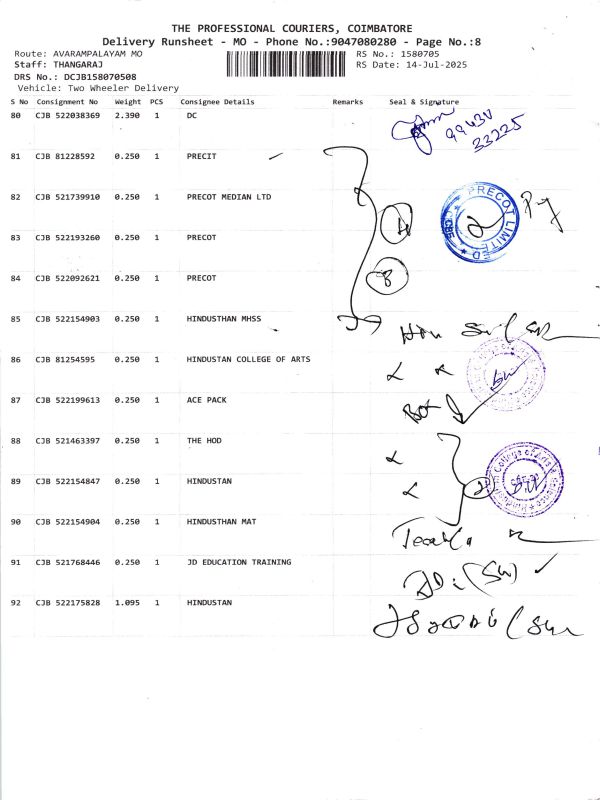 THE PROFESSIONAL COURIERS, COIMBATORE
Delivery Runsheet - MO - Phone No.:9047080280 - Page No.:8
Route: AVARAMPALAYAM MO RS No.: 1580705
Staff: THANGARAJ RS Date: 14-Jul-2025
DRS No.: DCJB158070508
Vehicle: Two Wheeler Delivery
S No Consignment No Weight PCS Consignee Details Remarks Seal & Signature
80 CJB 522038369 2.390 1 DC
33225
81 CJB 81228592 0.250 1 PRECIT
82 CJB 521739910 0.250 1 PRECOT MEDIAN LTD
PRECOT LIMITED
CBE
83 CJB 522193260 0.250 1 PRECOT
84 CJB 522092621 0.250 1 PRECOT
85 CJB 522154903 0.250 1 HINDUSTHAN MHSS
86 CJB 81254595 0.250 1 HINDUSTAN COLLEGE OF ARTS
87 CJB 522199613 0.250 1 ACE PACK
88 CJB 521463397 0.250 1 THE HOD
89 CJB 522154847 0.250 1 HINDUSTAN
90 CJB 522154904 0.250 1 HINDUSTHAN MAT
91 CJB 521768446 0.250 1 JD EDUCATION TRAINING
92 CJB 522175828 1.095 1 HINDUSTAN